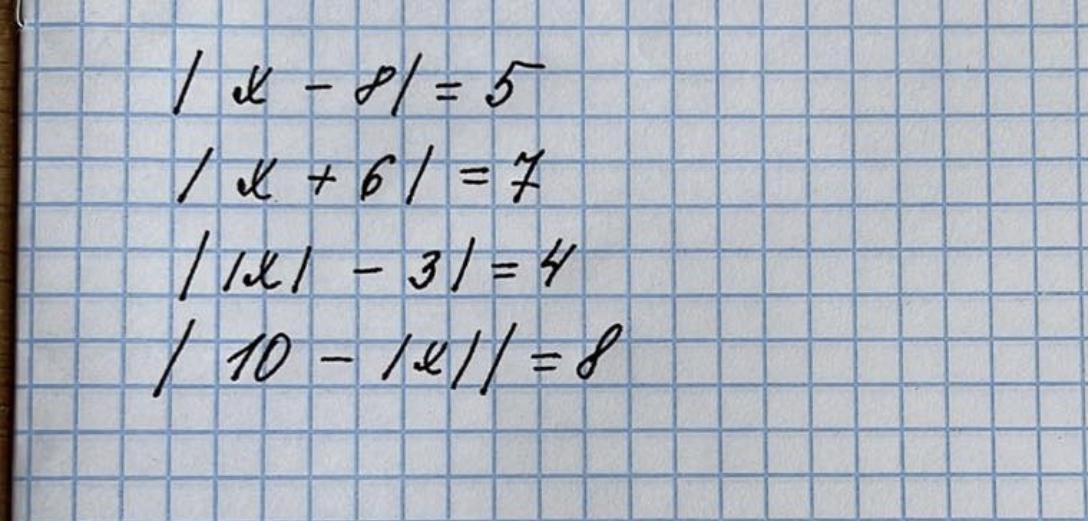 | x - 8| = 5
| x + 6| = 7
| |x| - 3| = 4
| 10 - |x|| = 8